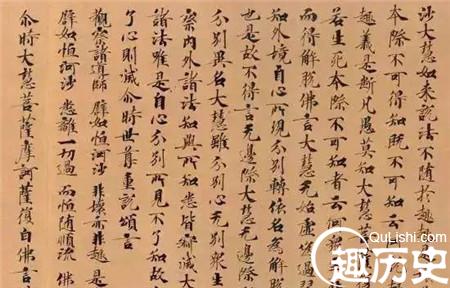 沙大慧如来說法不随於趣趣
本際不可得知既不可知云何
趣義是斷凡愚莫知大慧菩薩
若生死本際不可知者云何
而得解脫佛言大慧无始虛偽過習
知外境自心所現分別轉依名為解脫
也是故不得言无邊際大慧无邊
分別異名大慧離分別心无別眾生
察內外諸法知與所知悉皆寂滅大
諸法唯是自心分別所見不了知故
了心則滅尒時世尊重說頌言
觀察諸導師 譬如恒河沙 非壞亦非趣 是
譬如恒河沙 悉離一切過 而恒随順流 佛
尒時大慧菩薩摩訶薩復白佛言
QuLishi.com
趣历史